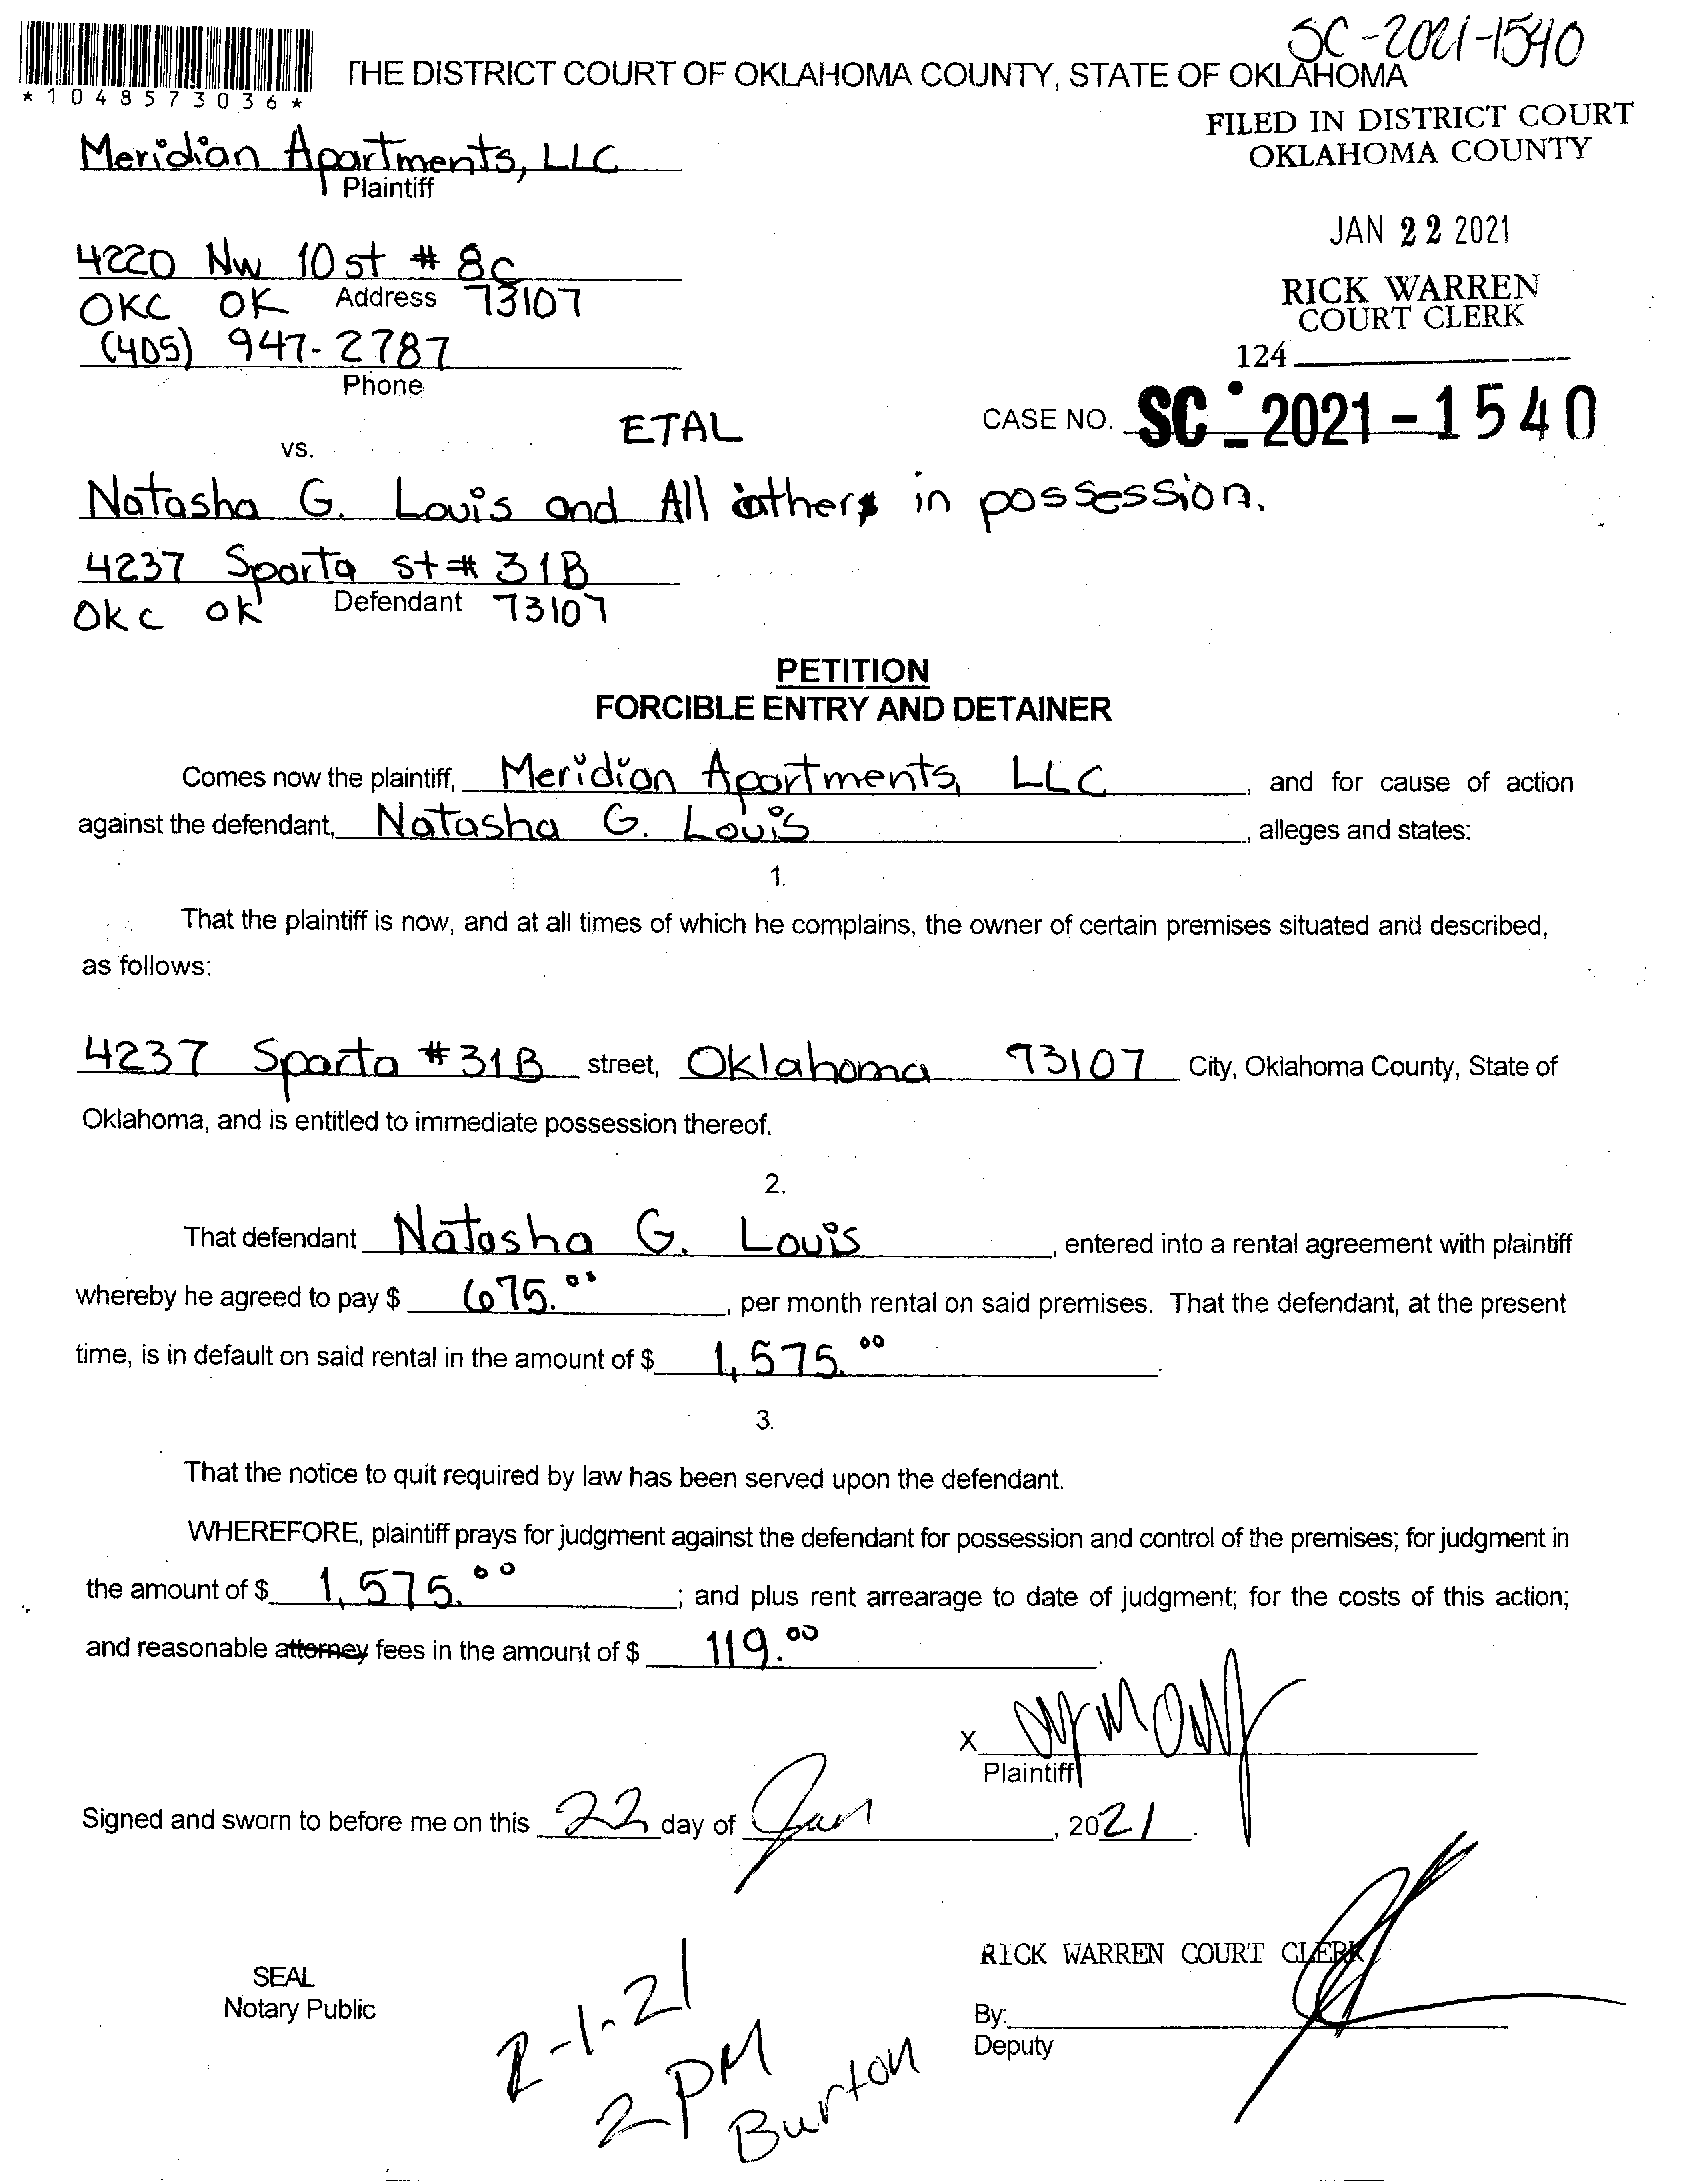 SC-2021-1540
THE DISTRICT COURT OF OKLAHOMA COUNTY, STATE OF OKLAHOMA
*1048573036*
FILED IN DISTRICT COURT
OKLAHOMA COUNTY
Meridian Apartments, LLC
Plaintiff
JAN 22 2021
4220 NW 10 st # 8C
Address
OKC OK 73107
RICK WARREN
COURT CLERK
(405) 947-2787
124
Phone
ETAL
CASE NO. SC - 2021 - 1540
vs.
Natasha G. Louis and All others in possession.
4237 Sparta st # 31B
Defendant
OKC OK 73107
PETITION
FORCIBLE ENTRY AND DETAINER
Comes now the plaintiff, Meridian Apartments, LLC, and for cause of action
against the defendant, Natasha G. Louis, alleges and states:
1.
That the plaintiff is now, and at all times of which he complains, the owner of certain premises situated and described,
as follows:
4237 Sparta #31B street, Oklahoma 73107 City, Oklahoma County, State of
Oklahoma, and is entitled to immediate possession thereof.
2.
That defendant Natasha G. Louis, entered into a rental agreement with plaintiff
whereby he agreed to pay $ 675.00, per month rental on said premises. That the defendant, at the present
time, is in default on said rental in the amount of $ 1,575.00.
3.
That the notice to quit required by law has been served upon the defendant.
WHEREFORE, plaintiff prays for judgment against the defendant for possession and control of the premises; for judgment in
the amount of $ 1,575.00; and plus rent arrearage to date of judgment; for the costs of this action;
and reasonable attorney fees in the amount of $ 119.00.
X
Plaintiff
Signed and sworn to before me on this 22 day of Jan, 2021.
RICK WARREN COURT CLERK
SEAL
Notary Public
By:
Deputy
2-1-21
2 PM
Burton